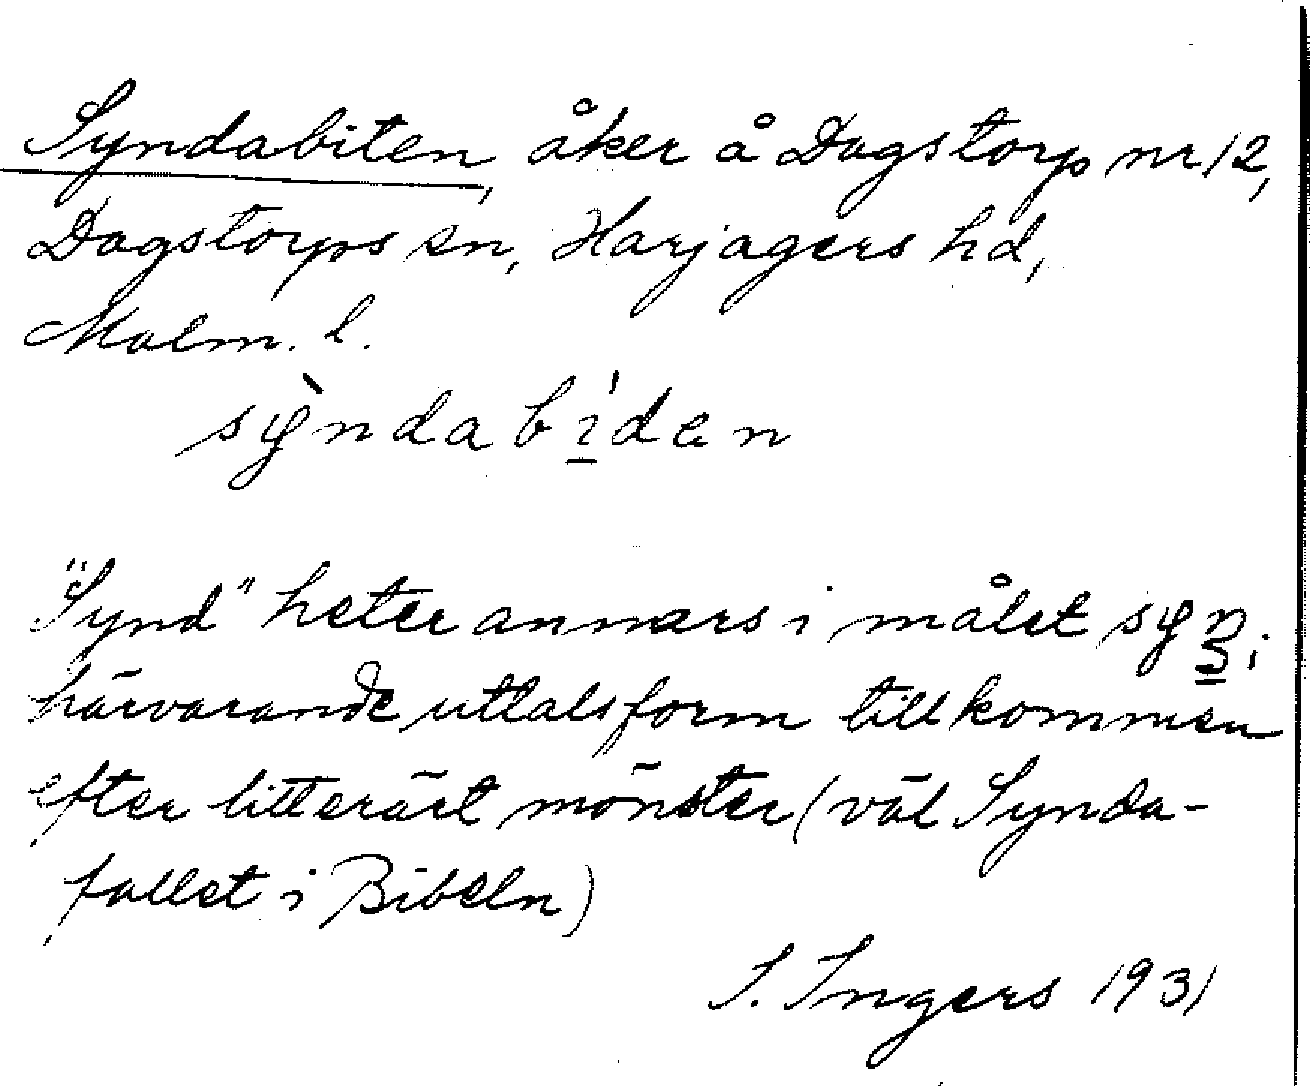 Syndabiten, åker å Dagstorp nr 12,
Dagstorps sn, Harjagers hd,
Malm. l.
sỳndabí̲den
"Synd" heter annars i målet syn̲;
härvarande uttalsform tillkommen
efter litterärt mönster (väl Synda-
fallet i Bibeln)
I. Ingers 1931